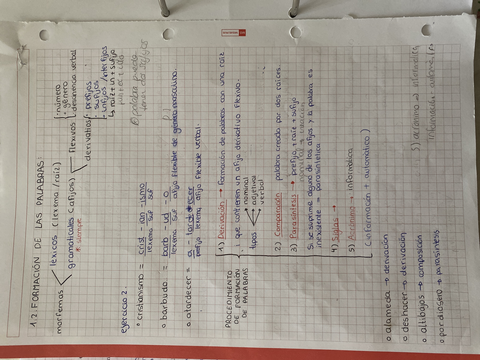 1.2. FORMACIÓN DE LAS PALABRAS
morfemas
léxicos (lexema/raíz)
gramaticales (afijos)
* siempre
flexivos
número
género
desinencia verbal
derivativos
prefijos
sufijos
infijos/interfijos
raíz + in + sufijo
ejercicio 2.
o cristianismo = crist - ian - ismo
lexema suf suf
o barbudo = barb - ud - o
lexema suf afijo flexible de género masculino.
o atardecer = a - tard - ecer
prefijo lexema afijo flexible verbal.
PROCEDIMIENTO DE FORMACIÓN DE PALABRAS
1) Derivación → formación de palabras con una raíz
y que contienen un afijo derivativo flexivo.
tipos
nominal
adjetival
verbal
2) Composición → palabra creada por dos raíces.
3) Parasíntesis → prefijo + raíz + sufijo
Si se suprime alguno de los afijos y la palabra es
inexistente → parasintética
4) Siglas →
5) Acrónimo → informática
(información + automática)
o alameda → derivación
o deshacer → derivación
o altibajos → composición
o pordiosero → parasíntesis
5) acrónimo → informática